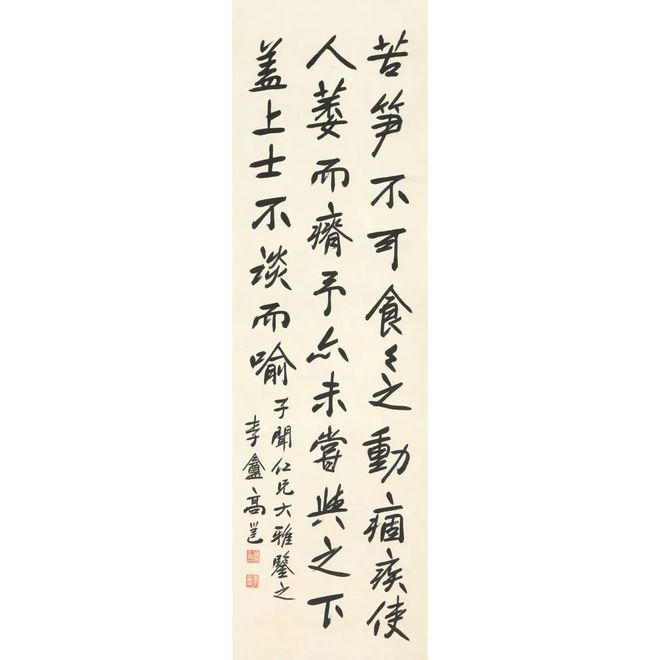 苦笋不可食々之動痼疾使
人萎而瘠予亦未嘗與之下
盖上士不談而喻子聞仁兄大雅鑒之
李盦高邕